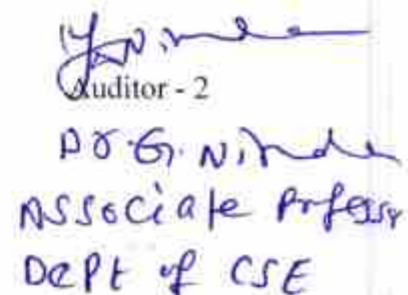 Auditor - 2
Dr. G. Nirmala
Associate Professr
Dept of CSE